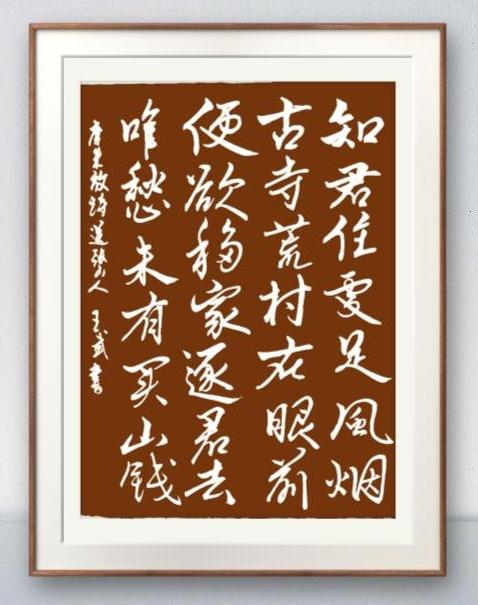 知君住處足風烟
古寺荒村在眼前
便欲移家逐君去
唯愁未有买山钱
唐朱放诗送張山人 武書